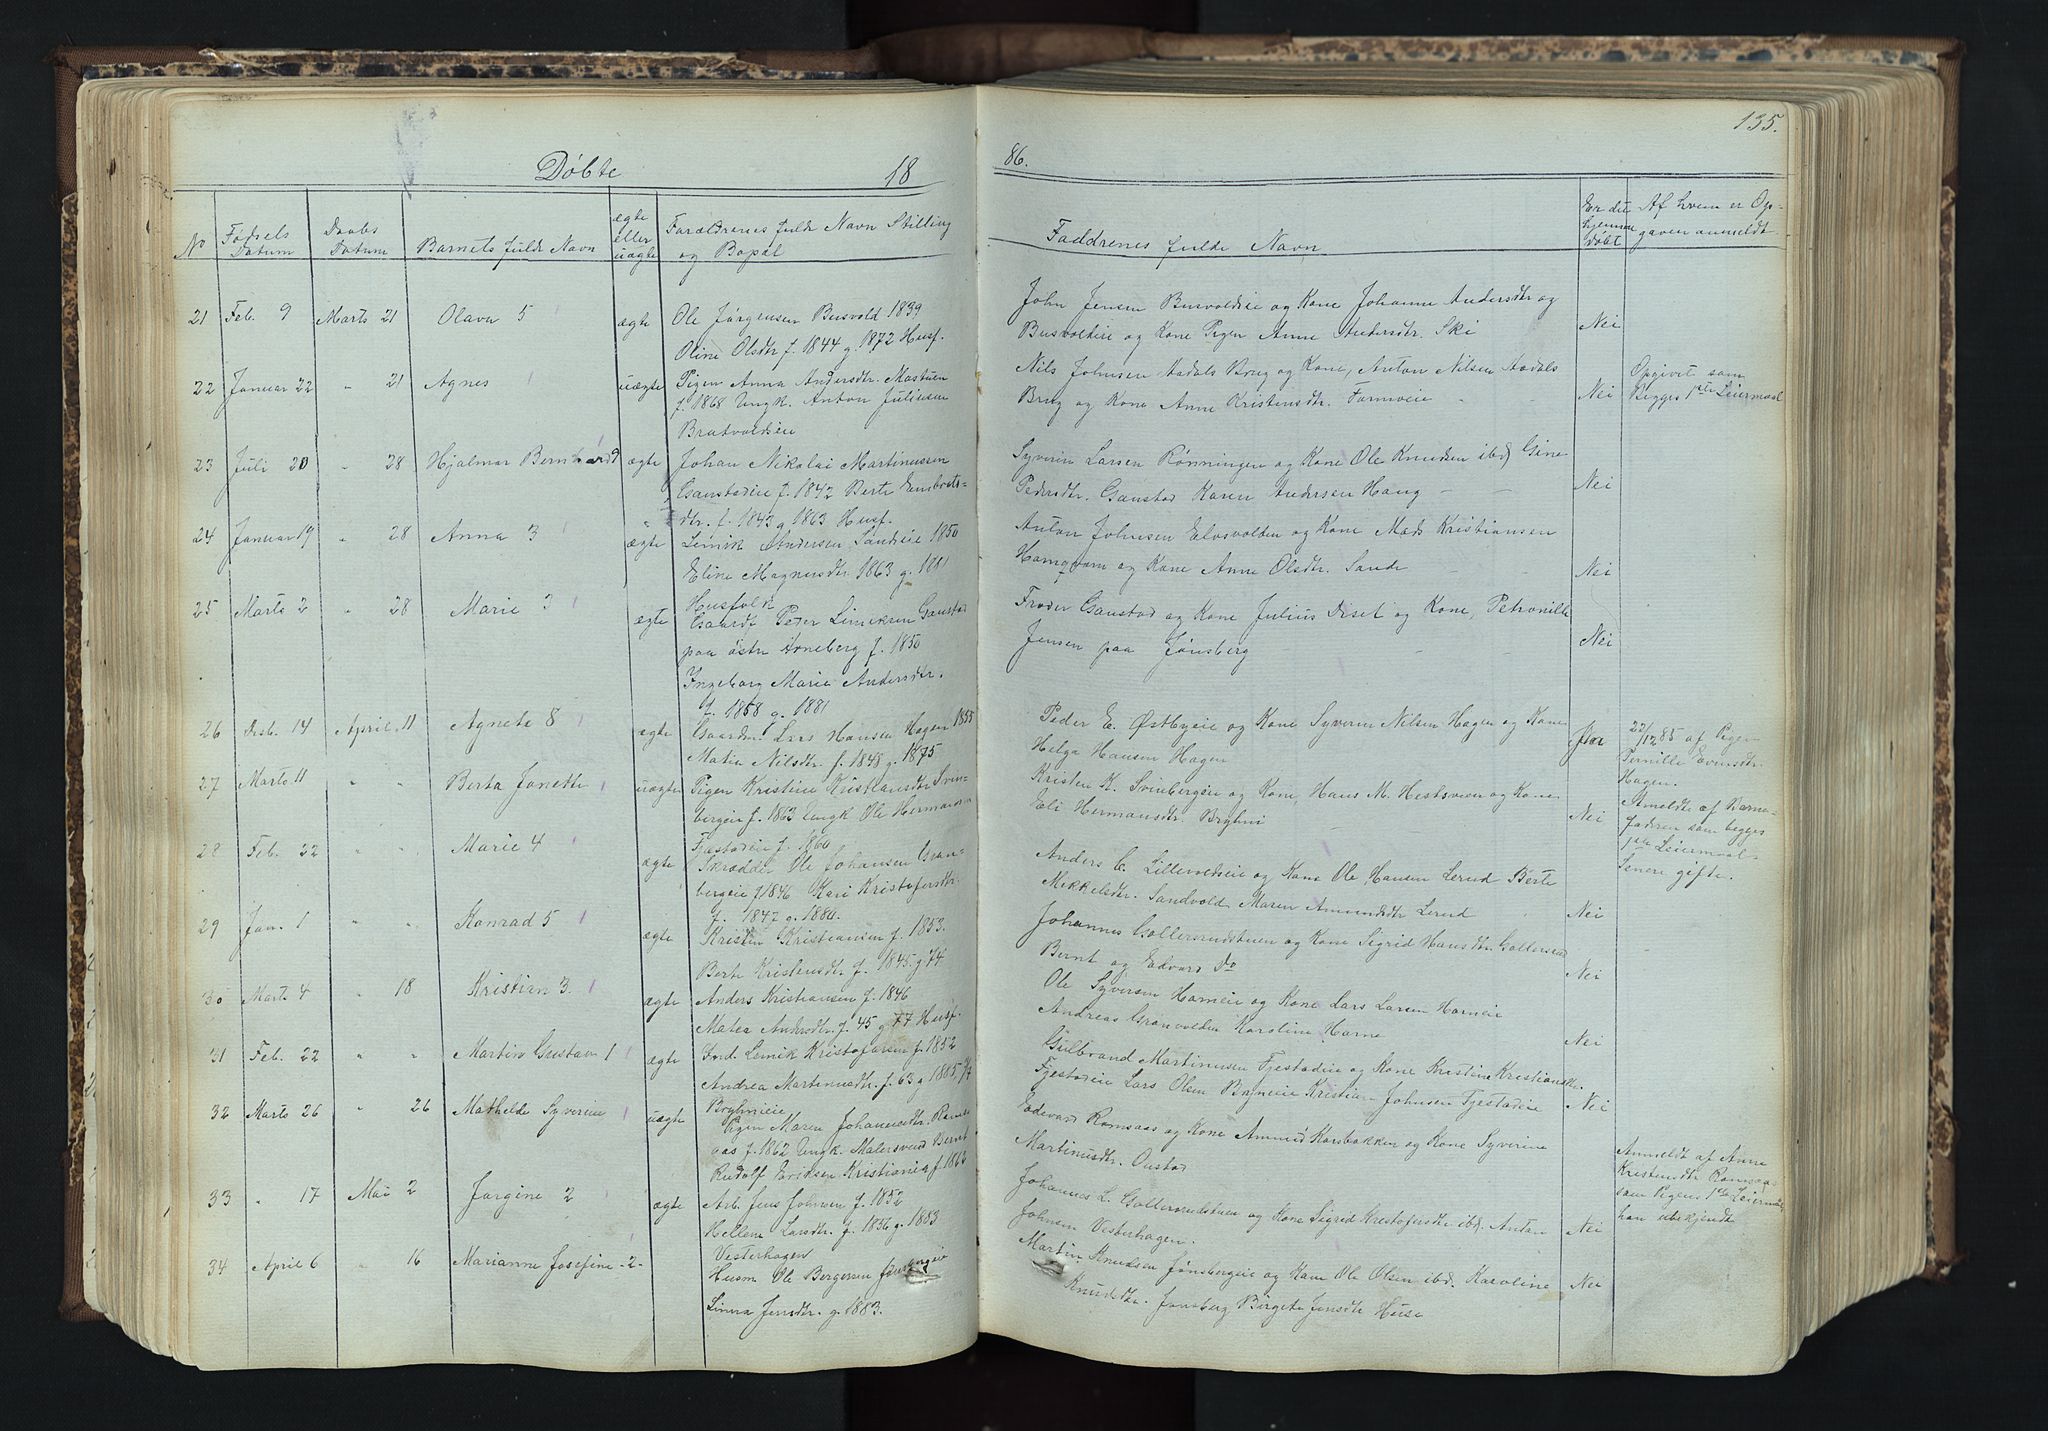 135.
Døbte 18
86.
No
Fødsels Datum
Daabs Datum
Barnets fulde Navn
ægte eller uægte
Forældrenes fulde Navn Stilling og Bopæl
Faddrenes fulde Navn
Er det hjemme døbt
Af hvem er Opgaven anmeldt
21 Feb. 9 Marts 21 Olava 5 ægte Ole Jørgensen Busvold 1839
Oline Olsdtr f. 1844 g. 1872 Husf.
John Jensen Busvoldeie og Kone Johanne Andersdtr og
Busvoldeie og Kone Pigen Anne Andersdtr. Ski Nei
22 Januar 22 " 21 Agnes uægte Pigen Anna Andersdtr. Mostuen
f. 1868 Ungk. Anton Juliusen
Bratvoldeie
Nils Johnsen Aadals Brug og Kone, Anton Nilsen Aadals
Brug og Kone Anne Kristensdtr. Farmveie Nei
Opgivet som
Begges 1ste Leiermaal
23 Juli 20 " 28 Hjalmar Bernhard ægte Johan Nikolai Martinussen
Gaustadeie f. 1842 Berte Embrets-
dtr. f. 1843 g 1863 Husf.
Syverin Larsen Rønningen og Kone Ole Knudsen ibd Gine
Pedersdtr. Gaustad Karen Andersen Haug Nei
24 Januar 19 " 28 Anna 3 ægte Lemik Andersen Sandeie 1850
Eline Magnusdtr. 1863 g. 1881
Husfolk
Anton Johnsen Elvsvolden og Kone Mads Kristiansen
Hornqvam og Kone Anne Olsdtr. Sande Nei
25 Marts 2 " 28 Marie 3 ægte Gaardr Peder Limeksen Gaustad
paa østre Arneberg f. 1850
Ingeborg Marie Andersdtr.
f. 1858 g. 1881
Frøder Gaustad og Kone Julius Diset og Kone, Petronille
Jensen paa Jønsberg Nei
26 Desb. 14 April 11 Agnete 8 ægte Gaardbr. Lars Hansen Hagen 1855
Matia Nilsdtr. f. 1848 g. 1875
Peder E. Østbyeie og Kone Syverin Nilsen Hagen og Kone
Helga Hansen Hagen Jar
22/12 85 af Pigen
Pernille Evensdtr.
Hagen.
27 Marts 11 " " Berta Janette uægte Pigen Kristine Kristiansdtr Svin-
bergeie f. 1863 Ungk Ole Hermansen
Fjestadeie f. 1860
Kristen K. Svinbergeie og Kone, Hans M. Hestsveen og Kone
Eli Hermansdtr. Bryhni Nei
Anmeldte af Barne-
faderen som begges
1ste Leiermaal-
Senere gifte.
28 Feb. 22 " " Marie 4 ægte Skrædder Ole Johansen Gran-
bergeie f 1846 Kari Kristofersdtr.
f. 1847 g. 1880.
Anders C. Lillevoldeie og Kone Ole Hansen Lerud Berte
Mikkelsdtr. Sandvold Maren Amundsdtr Lerud Nei
29 Jan. 1 " " Konrad 5 ægte Kristen Kristiansen f. 1853.
Berte Kristensdtr f. 1845. g 74
Johannes Gollersrudstuen og Kone Sigrid Hansdtr. Gollersrud
Bernt og Edvard Do Nei
30 Marts 4 " 18 Kristian 3. ægte Anders Kristiansen f. 1846
Matea Andersdtr. f. 45 g 77 Husf.
Ole Syversen Horneie og Kone Lars Larsen Horneie
Andreas Grønvolden Karoline Horne Nei
31 Feb. 22 " " Martin Gustav 1 ægte Ind. Lemik Kristofersen f. 1852
Andrea Martinusdtr. f. 63 g 1885
Bryhnieie
Gulbrand Martinusen Fjestadeie og Kone Kristine Kristiansdtr.
Fjestadeie Lars Olsen Bryneie Kristian Johnsen Fjestadeie Nei
32 Marts 26 " 26 Mathilde Syverine uægte Pigen Maren Johannesdtr. Roms-
aas f. 1862 Ungk. Malersvend Bernt
Rudolf Eriksen Kristiania f. 1863
Edevard Romsaas og Kone Amund Korsbakken og Kone Syverine
Martinusdtr. Oustad
Anmeldt af Anne
Kristensdtr Romsaas
som Pigens 1ste Leiermaal
han ubekjendt
33 " 17 Mai 2 Jørgine 2 ægte Arb. Jens Johnsen f. 1852
Hellene Larsdtr. f. 1856 g. 1883
Vesterhagen
Johannes L. Gollersrudstuen og Kone Sigrid Kristofersdtr ibd. Anton
Johnsen Vesterhagen. Nei
34 April 6 " 16 Marianne Josefine -2- Husm Ole Bergersen Jønsbergeie
Linna Jensdtr. g. 1883.
Martin Knudsen Jønsbergeie og Kone Ole Olsen ibd. Karoline
Knudsdtr. Jønsberg Birgete Jensdtr Huse Nei